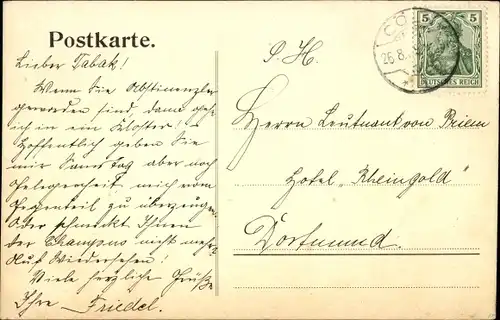 Postkarte.
Lieber Tabak!
Wenn Sie Abstinenzler
geworden sind, dann geh
ich in ein Kloster! –
Hoffentlich geben Sie
mir Samstag aber noch
Gelegenheit, mich vom
Gegenteil zu überzeugen.
Oder schmeckt Ihnen
der Champus nicht mehr?
Auf Wiedersehen!
Viele herzliche Grüße
Ihre Friedel.
S. H.
Herrn Leutnant von
Hotel „Rheingold"
Dortmund.
CÖ
26.8.
5 5
DEUTSCHES REICH